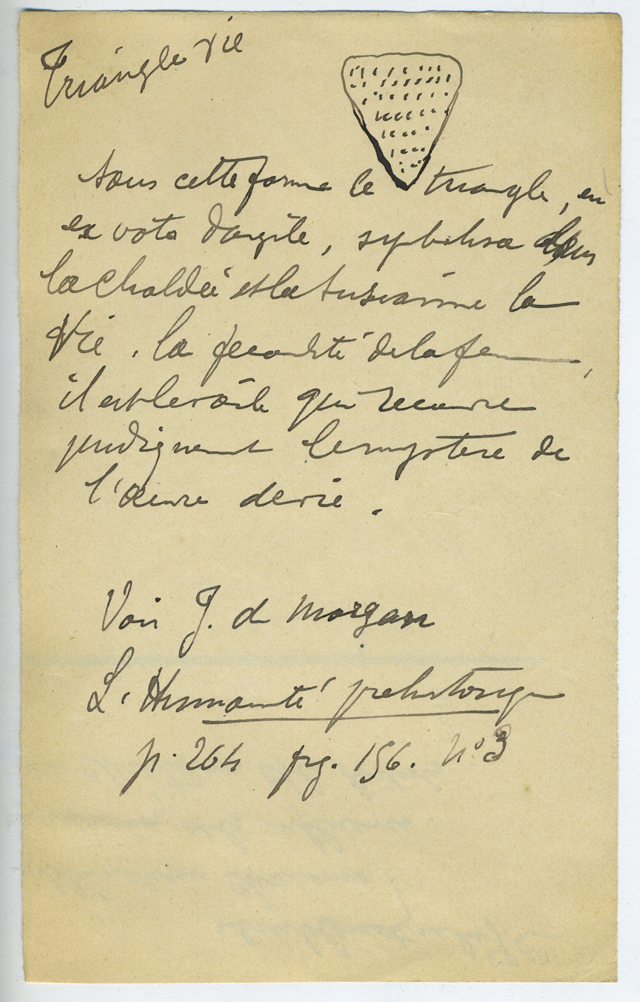 Triangle vie
Sous cette forme le triangle, en
ex voto d'argile, symbolisa dans
la Chaldée et la Susianne la
Vie, la fécondité de la femme,
il est le voile qui recouvre
pudiquement le mystère de
l'œuvre de vie.
Voir J. de Morgan
L'Humanité préhistorique
p. 264 fig. 156. n° 3